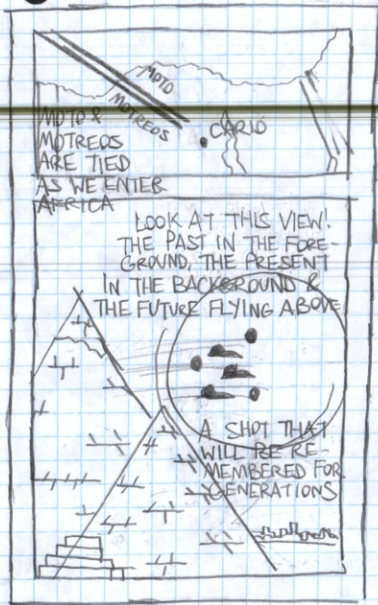 MOTO
MOTREDS
CARIO
MOTO &
MOTREDS
ARE TIED
AS WE ENTER
AFRICA
LOOK AT THIS VIEW!
THE PAST IN THE FORE-
GROUND, THE PRESENT
IN THE BACKGROUND &
THE FUTURE FLYING ABOVE
A SHOT THAT
WILL BE RE-
MEMBERED FOR
GENERATIONS